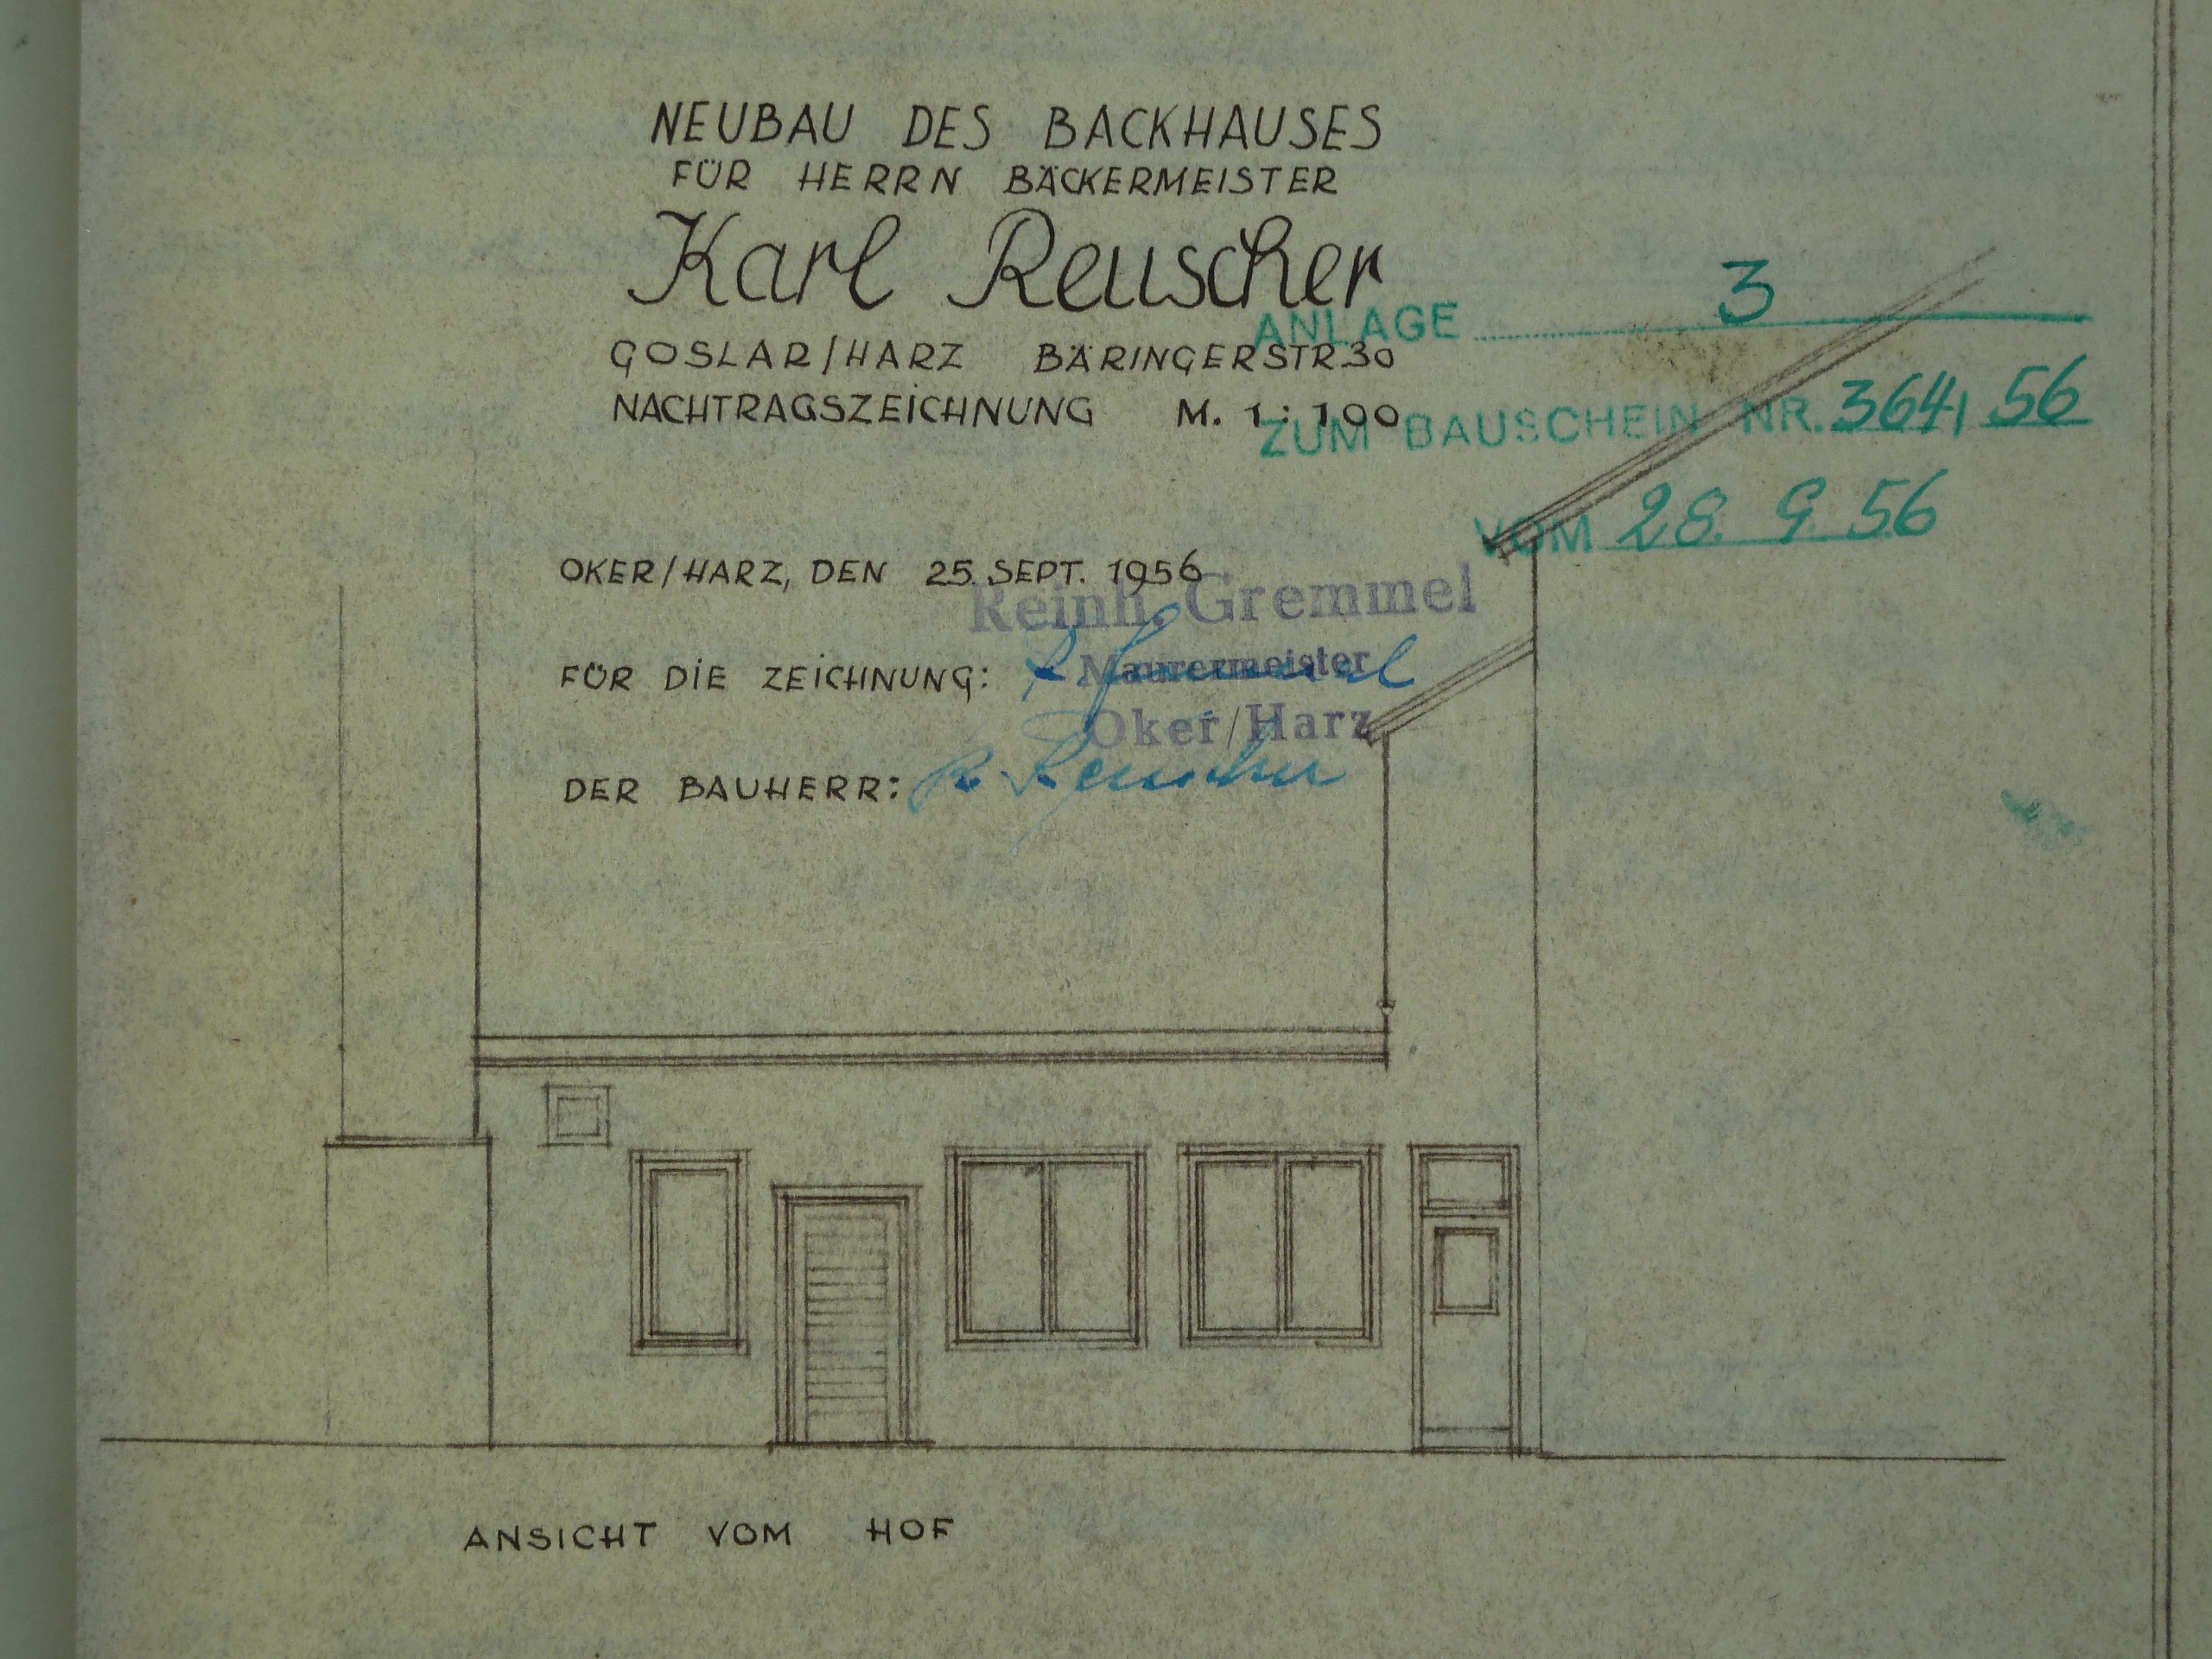 NEUBAU DES BACKHAUSES
FÜR HERRN BÄCKERMEISTER
Karl Reuscher
GOSLAR/HARZ BÄRINGERSTR.30
NACHTRAGSZEICHNUNG M. 1:100
ANLAGE 3
ZUM BAUSCHEIN NR. 364/56
VOM 28. 9. 56
OKER/HARZ, DEN 25. SEPT. 1956
Reinh. Gremmel
Maurermeister
Oker/Harz
FÜR DIE ZEICHNUNG: R. Gremmel
DER BAUHERR: K. Reuscher
ANSICHT VOM HOF